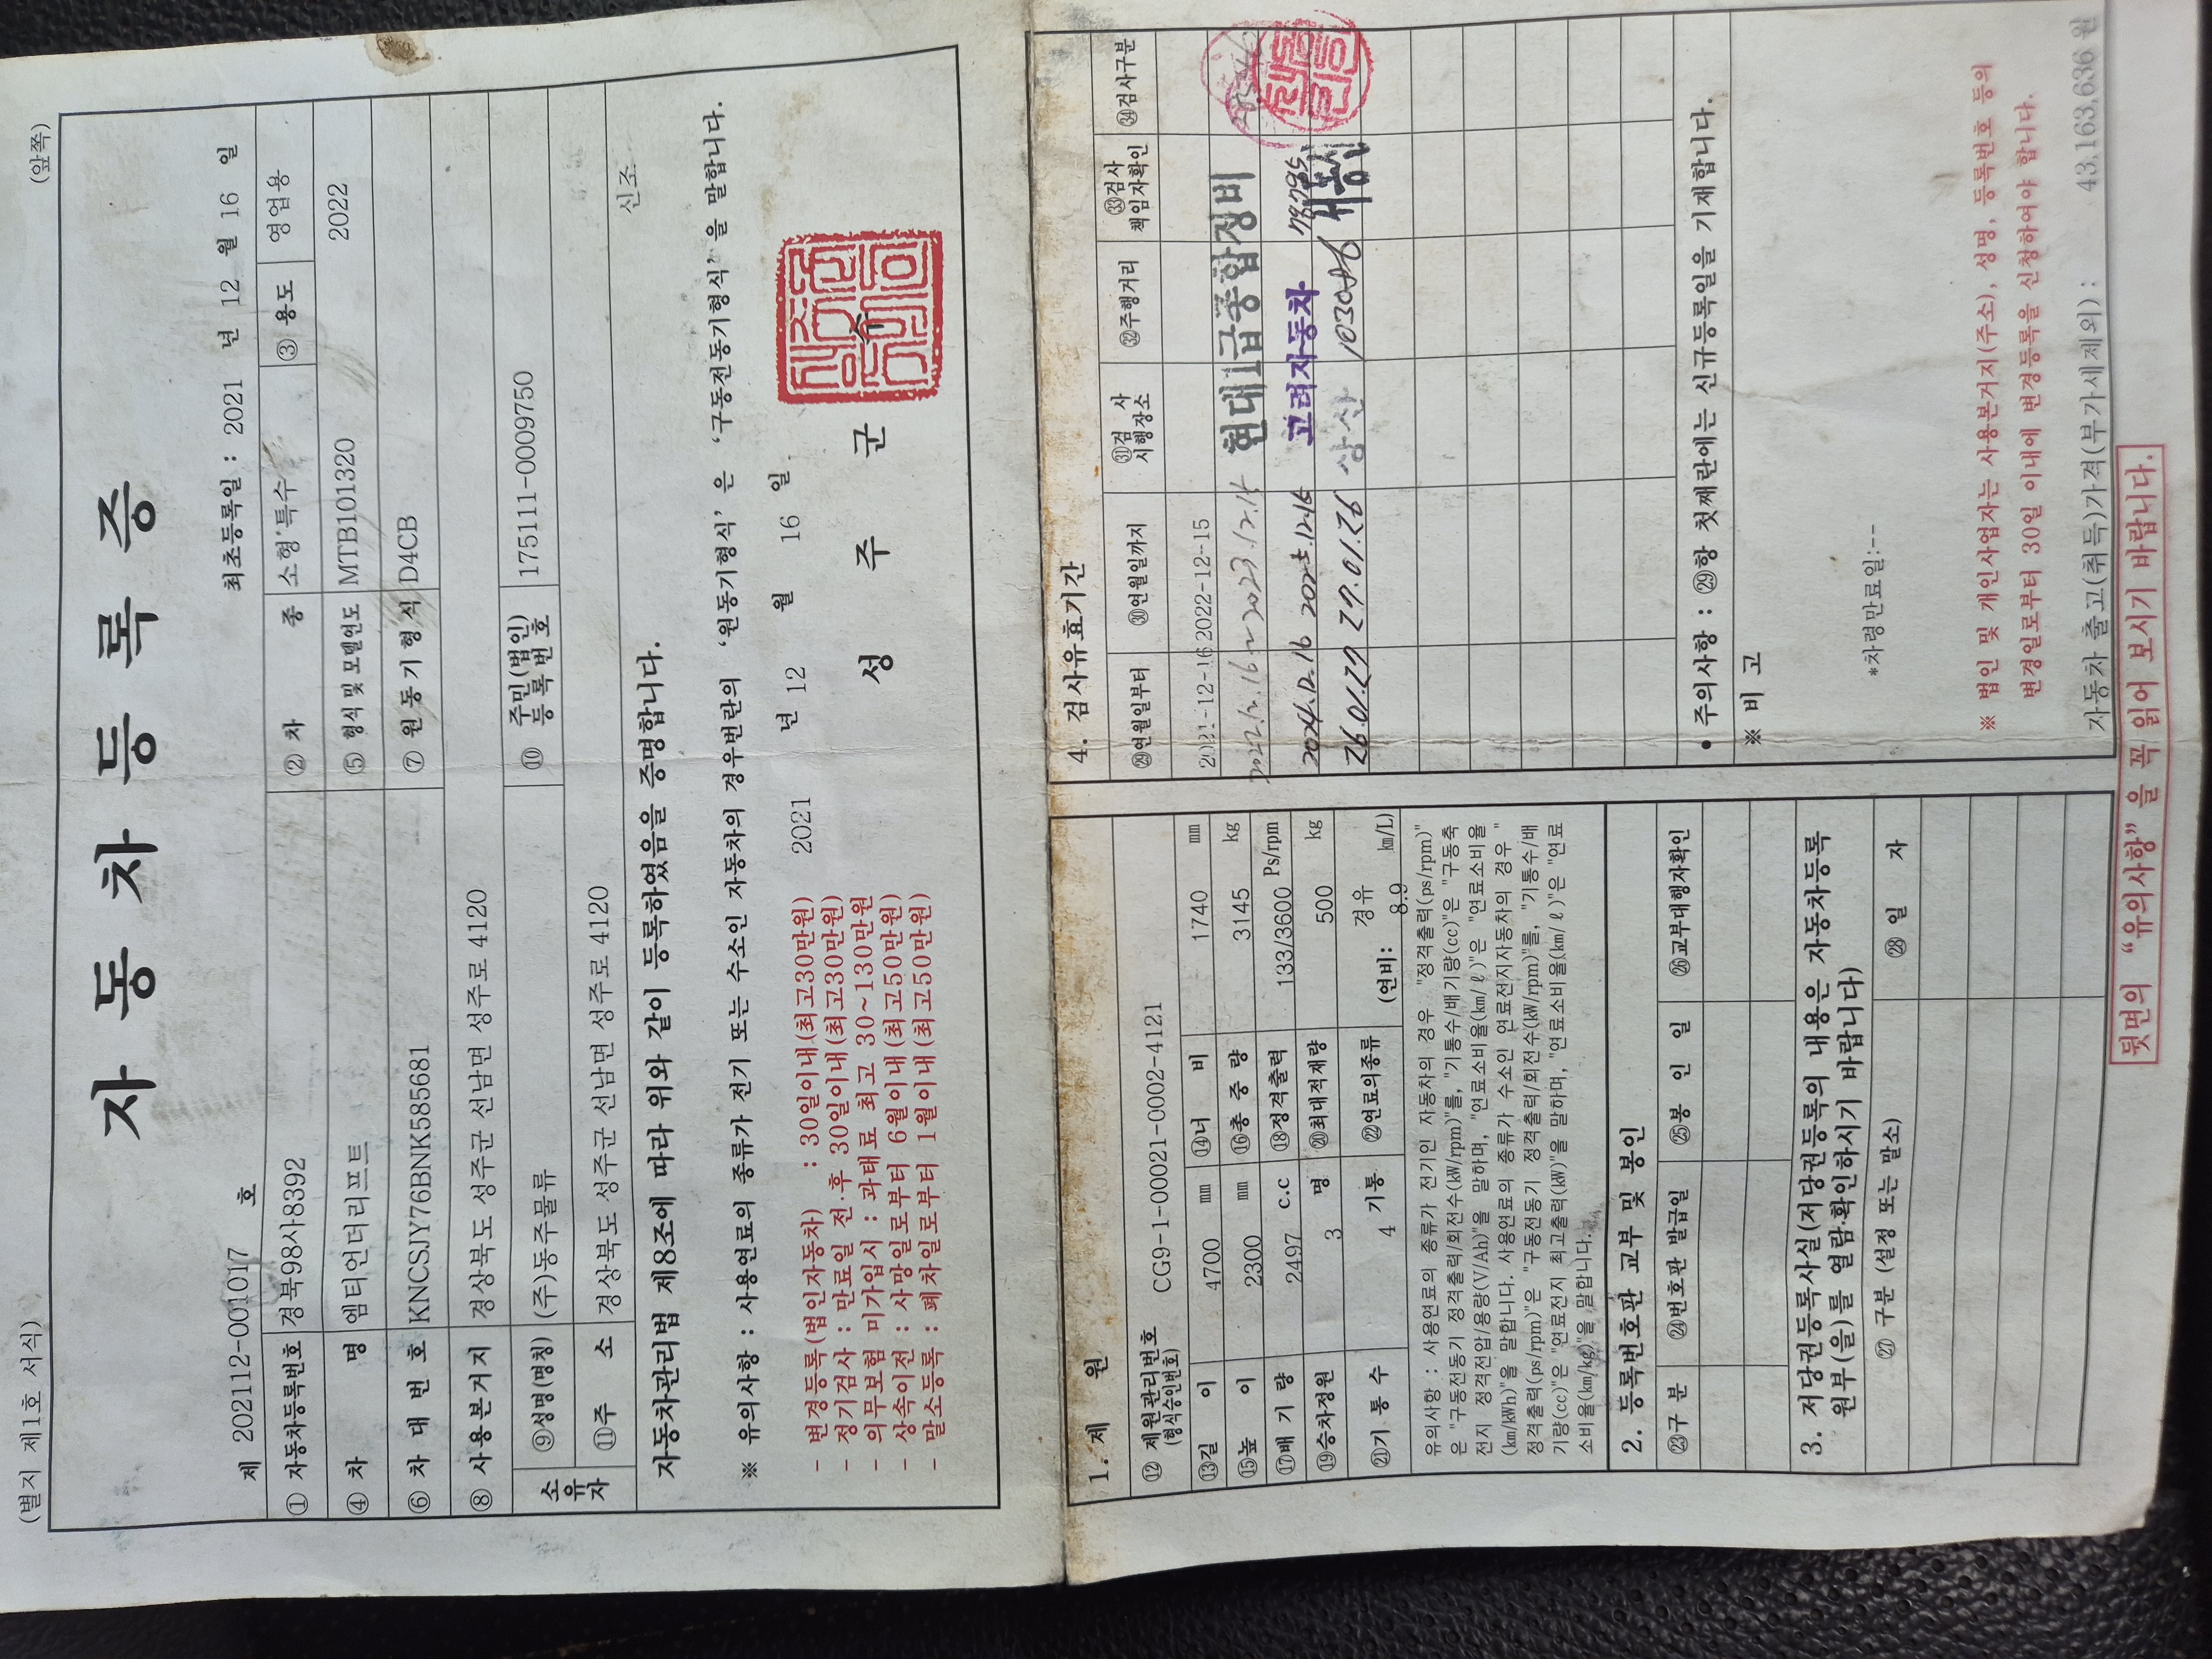 (별지 제1호 서식)
(앞쪽)
자동차등록증
제 202112-001017 호
최초등록일 : 2021 년 12 월 16 일
① 자동차등록번호 경북98사8392 ② 차 종 소형 특수 ③ 용도 영업용
④ 차 명 엠티언더리프트 ⑤ 형식 및 모델연도 MTB101320 2022
⑥ 차 대 번 호 KNCSJY76BNK585681 ⑦ 원 동 기 형 식 D4CB
⑧ 사용본거지 경상북도 성주군 선남면 성주로 4120
소유자 ⑨성명(명칭) (주)동주물류 ⑩ 주민(법인)등록번호 175111-0009750
⑪주 소 경상북도 성주군 선남면 성주로 4120
자동차관리법 제8조에 따라 위와 같이 등록하였음을 증명합니다.
신조
※ 유의사항 : 사용연료의 종류가 전기 또는 수소인 자동차의 경우번란의 '원동기형식' 은 '구동전동기형식' 을 말합니다.
- 변경등록(법인자동차) : 30일이내(최고30만원)
- 정기검사 : 만료일 전·후 30일이내(최고30만원)
- 의무보험 미가입시 : 과태료 최고 30~130만원
- 상속이전 : 사망일로부터 6월이내(최고50만원)
- 말소등록 : 폐차일로부터 1월이내(최고50만원)
2021 년 12 월 16 일
성 주 군 수
1. 제 원
⑫ 제원관리번호 (형식승인번호) CG9-1-00021-0002-4121
⑬길 이 4700 mm ⑭너 비 1740 mm
⑮높 이 2300 mm ⑯총 중 량 3145 kg
⑰배 기 량 2497 c.c ⑱정격출력 133/3600 Ps/rpm
⑲승차정원 3 명 ⑳최대적재량 500 kg
㉑기 통 수 4 기통 ㉒연료의종류 경유 (연비: 8.9 km/L)
유의사항 : 사용연료의 종류가 전기인 자동차의 경우 "정격출력(ps/rpm)"
은 "구동전동기 정격출력/회전수(kW/rpm)"를, "기통수/배기량(cc)"은 "구동축
전지 정격전압/용량(V/Ah)"을 말하며, "연료소비율(km/ℓ)"은 "연료소비율
(km/kWh)"을 말합니다. 사용연료의 종류가 수소인 연료전지자동차의 경우 "
정격출력(ps/rpm)"은 "구동전동기 정격출력/회전수(kW/rpm)"를, "기통수/배
기량(cc)"은 "연료전지 최고출력(kW)"을 말하며, "연료소비율(km/ℓ)"은 "연료
소비율(km/kg)"을 말합니다.
2. 등록번호판 교부 및 봉인
㉓구 분 ㉔번호판 발급일 ㉕봉 인 일 ㉖교부대행자확인
3. 저당권등록사실(저당권등록의 내용은 자동차등록
원부(을)를 열람·확인하시기 바랍니다)
㉗ 구분 (설정 또는 말소) ㉘ 일 자
4. 검사유효기간
㉙연월일부터 ㉚연월일까지 ㉛검 사 시행장소 ㉜주행거리 ㉝검사 책임자확인 ㉞검사구분
2021-12-16 2022-12-15
2022.12.16 ~ 2023.12.15 현대1급종합정비
2024.12.16 2025.12.15 고려자동차
26.01.27 27.01.26 상산
• 주의사항 : ㉙항 첫째란에는 신규등록일을 기재합니다.
※ 비 고
*차령만료일:--
※ 법인 및 개인사업자는 사용본거지(주소), 성명, 등록번호 등의
변경일로부터 30일 이내에 변경등록을 신청하여야 합니다.
자동차 출고(취득)가격(부가세제외) : 43,163,636 원
뒷면의 "유의사항"을 꼭 읽어 보시기 바랍니다.